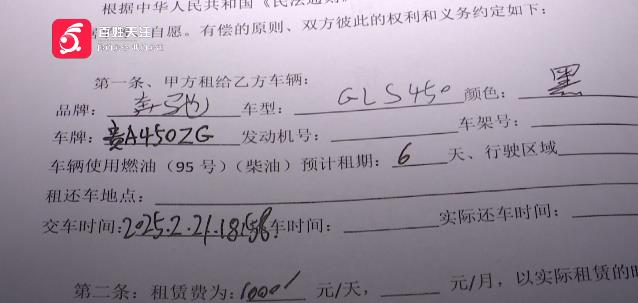 根据中华人民共和国《民法通则》
百姓关注 自愿。有偿的原则、双方彼此的权利和义务约定如下:
第一条、甲方租给乙方车辆:
品牌: 奔驰 车型: GLS450 颜色: 黑
车牌: 贵A450ZG 发动机号: 车架号:
车辆使用燃油(95号)(柴油)预计租期: 6 天、行驶区域
租还车地点:
交车时间: 2025.2.21.18:58. 车时间: 实际还车时间:
第二条: 租赁费为: 1000 元/天, 元/月, 以实际租赁的时